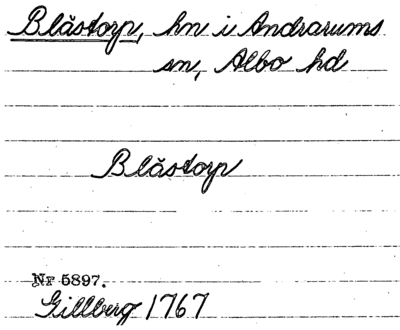 Blåstorp, hn i Andrarums
sn, Albo hd
Blåstorp
Nr 5897.
Gillberg 1767